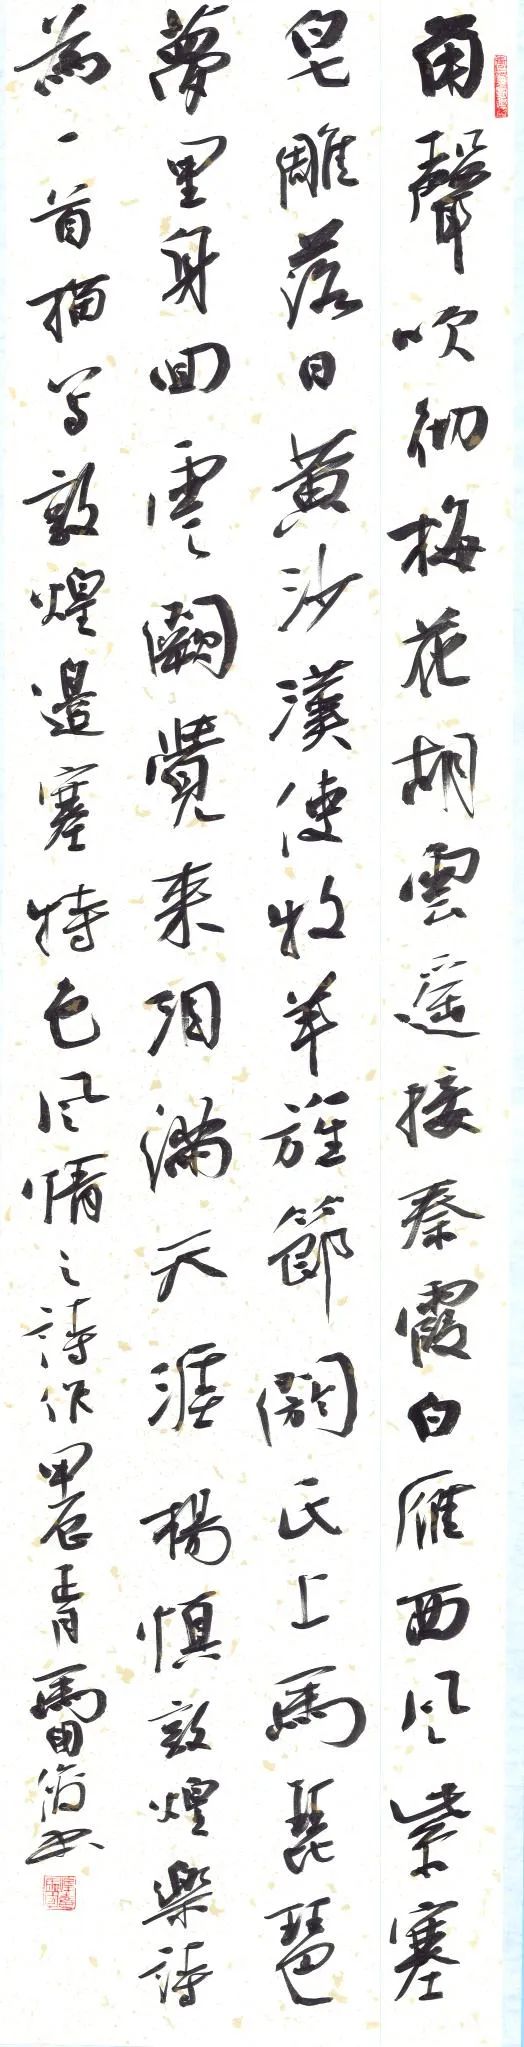 角聲吹彻梅花胡雲遥接秦霞白雁西風紫塞
皂雕落日黄沙漢使牧羊旌節閼氏上馬琵琶
夢里身回雲闕覺来泪满天涯楊慎敦煌樂詩
為一首描写敦煌邊塞特色風情之詩作甲辰書